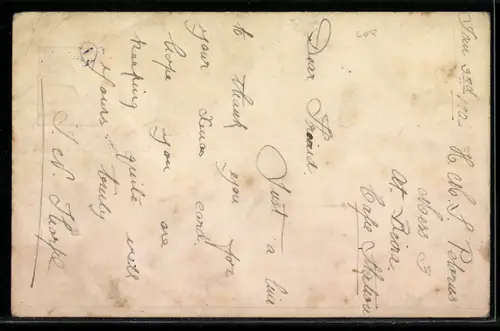 Jan 3rd 1902 H M S Pelorus
Mess 3
At
Cape Station
Dear Friend.
Just a line
to thank you for
your Xmas card.
hope you are
keeping quite well
Yours truly
J. N. Thorpe